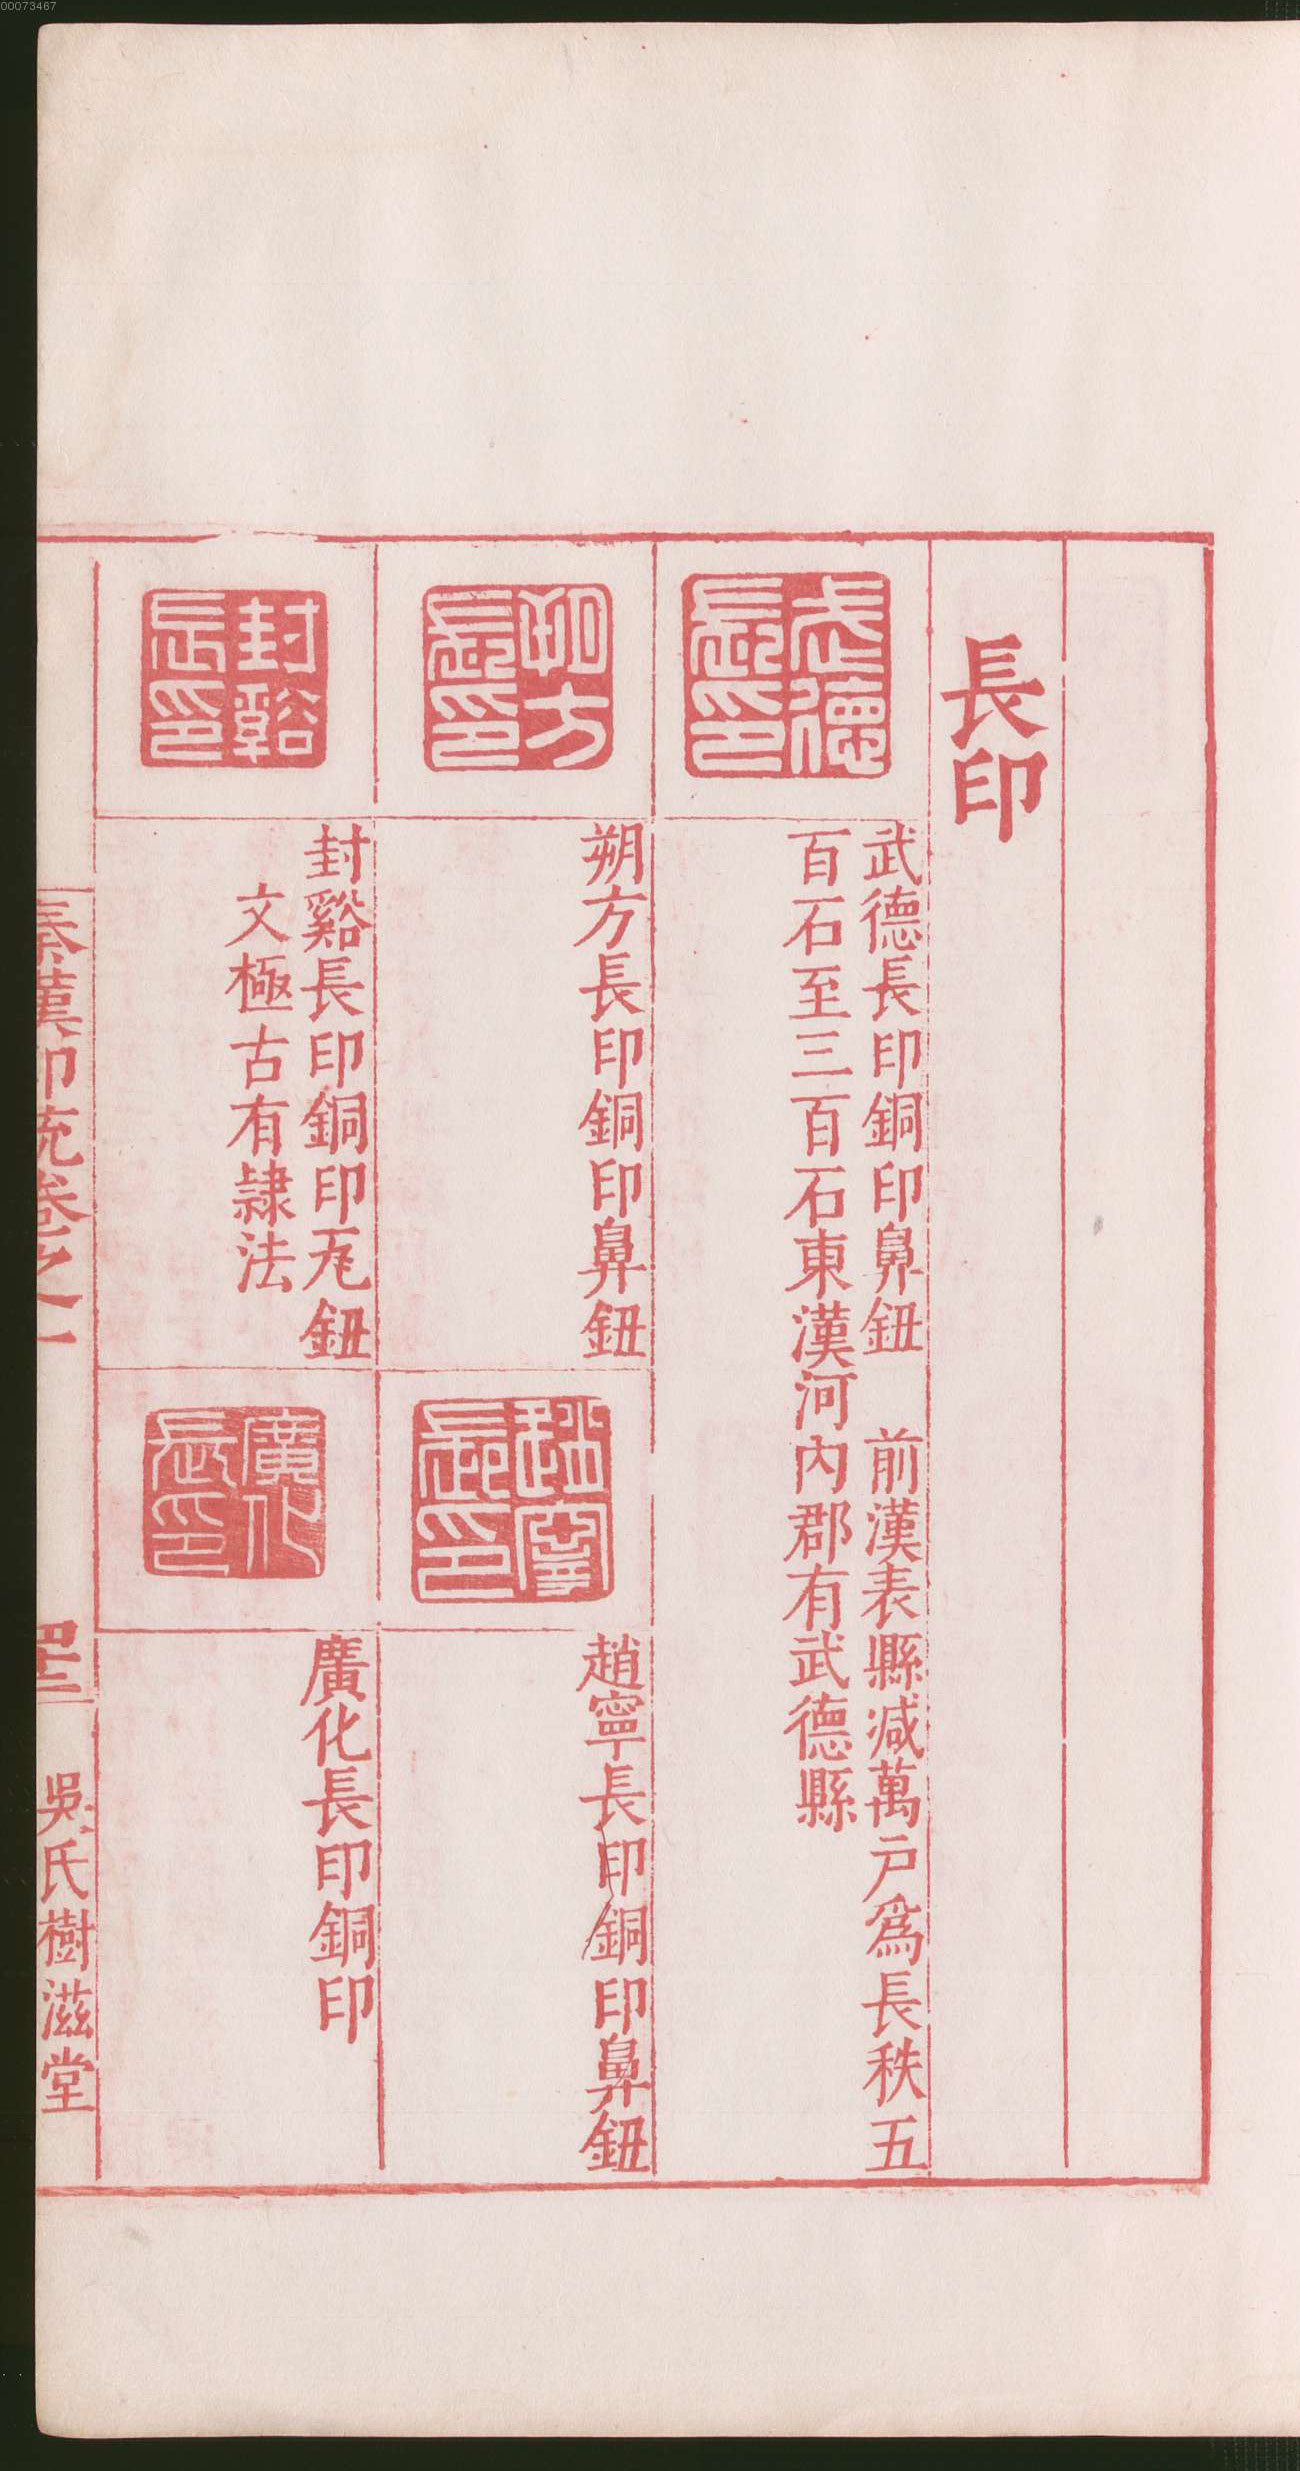 00073467
長印
武德長印
武德長印銅印鼻鈕　前漢表縣減萬戶爲長秩五
百石至三百石東漢河內郡有武德縣
朔方長印
朔方長印銅印鼻鈕
趙寧長印
趙寧長印銅印鼻鈕
封谿長印
封谿長印銅印瓦鈕
文極古有隷法
廣化長印
廣化長印銅印
秦漢印統卷之一
四十二
吳氏樹滋堂